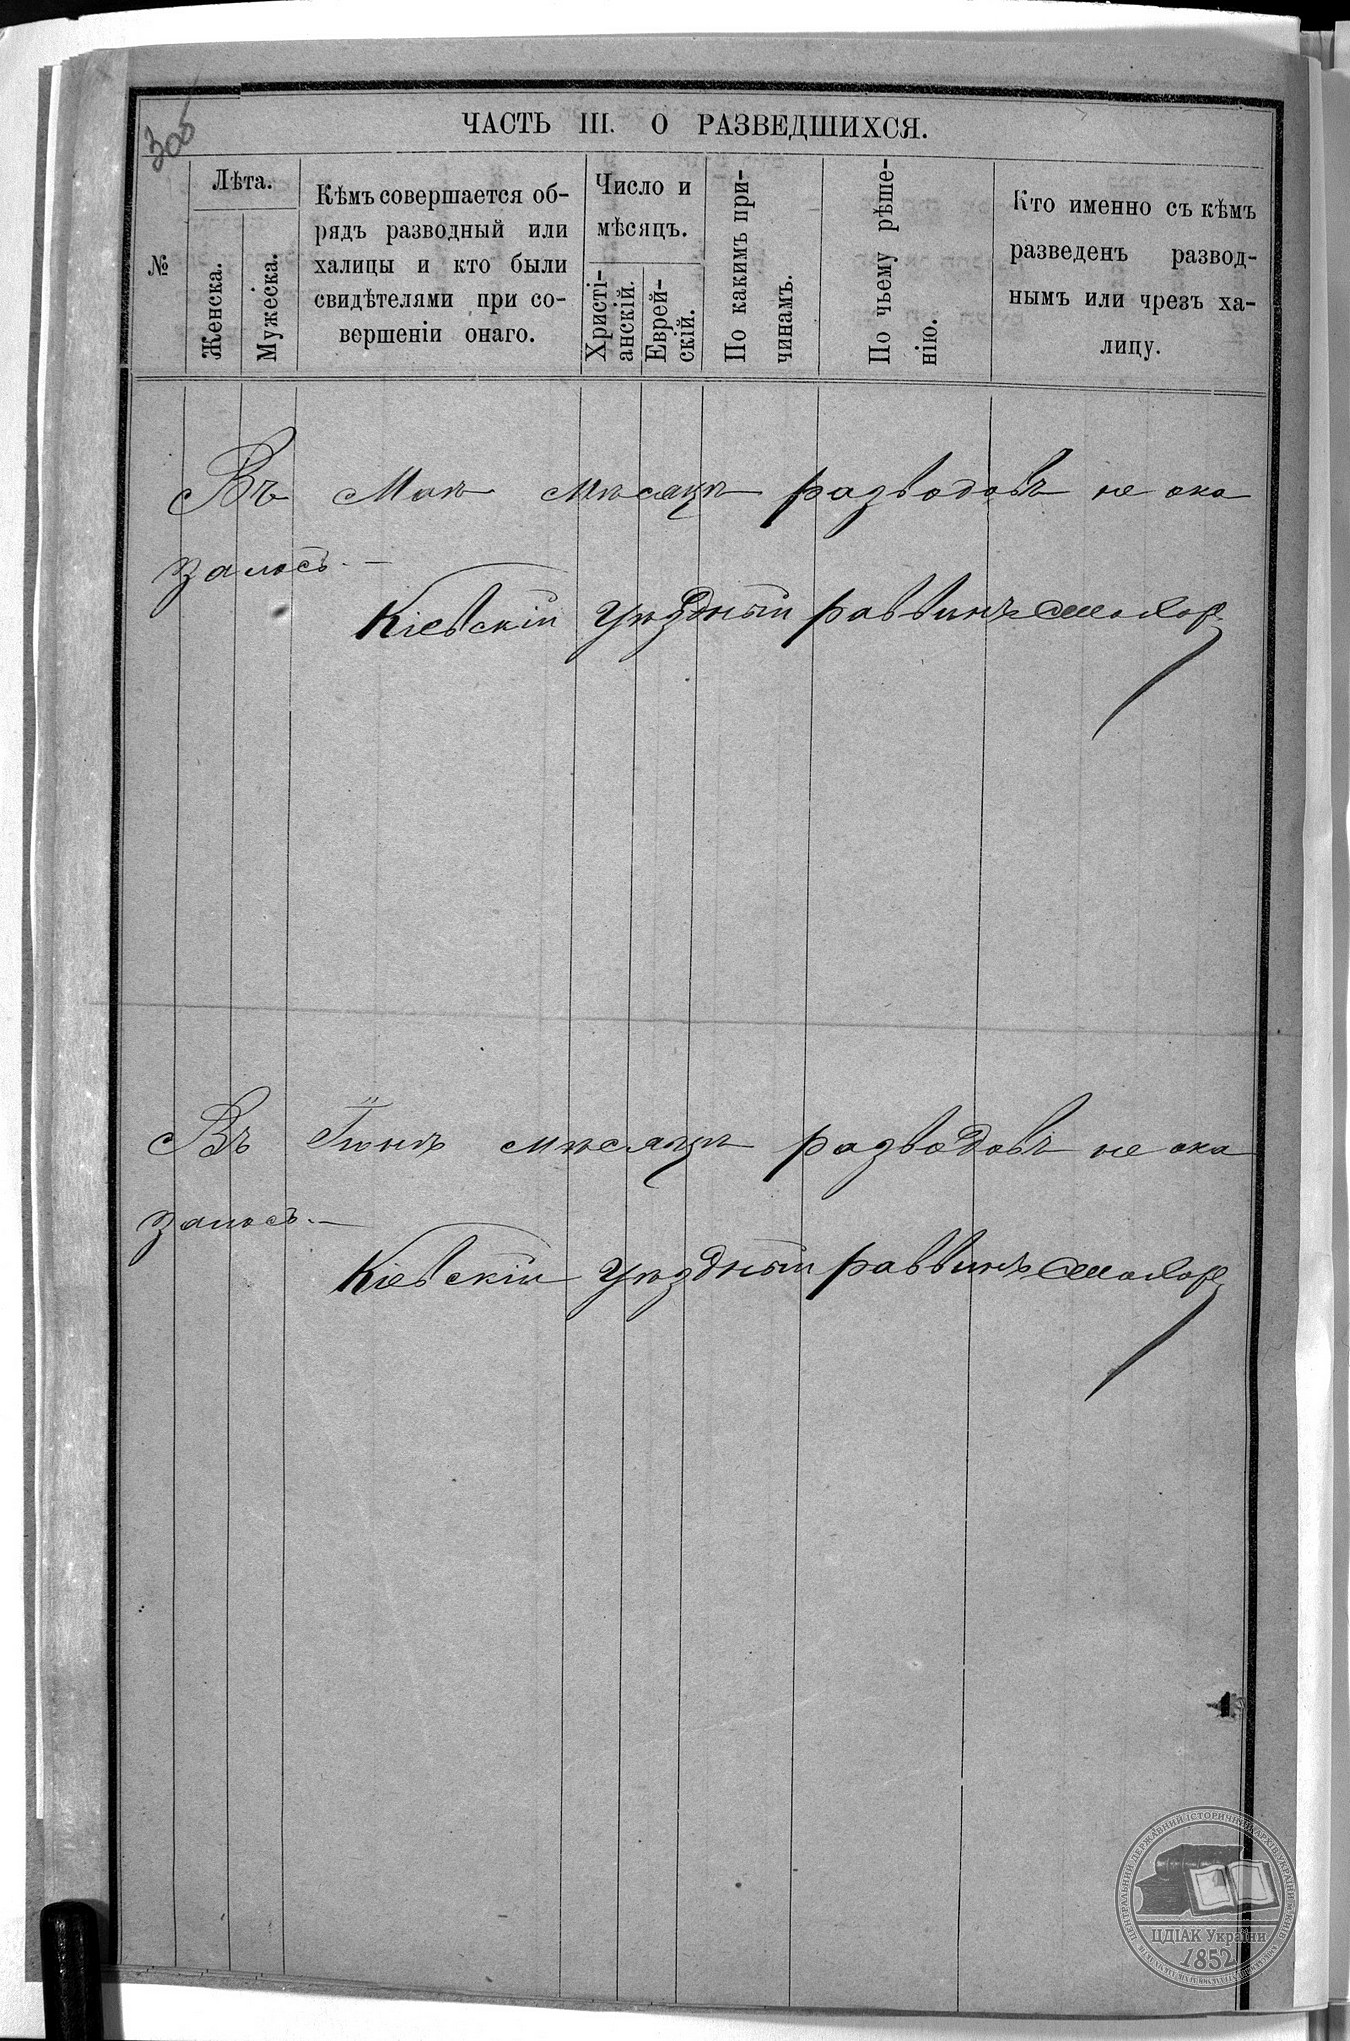 305
ЧАСТЬ III. О РАЗВЕДШИХСЯ.
№
Лѣта.
Женска.
Мужеска.
Кѣмъ совершается об-
рядъ разводный или
халицы и кто были
свидѣтелями при со-
вершеніи онаго.
Число и
мѣсяцъ.
Христі-
анскій.
Еврей-
скій.
По какимъ при-
чинамъ.
По чьему рѣше-
нію.
Кто именно съ кѣмъ
разведенъ развод-
нымъ или чрезъ ха-
лицу.
Въ Маѣ мѣсяцѣ разводовъ не ока
залось.—
Кіевскій Уѣздный раввинъ
Въ Іюнѣ мѣсяцѣ разводовъ не ока
залось.—
Кіевскій Уѣздный раввинъ
ЦДІАК України
1852